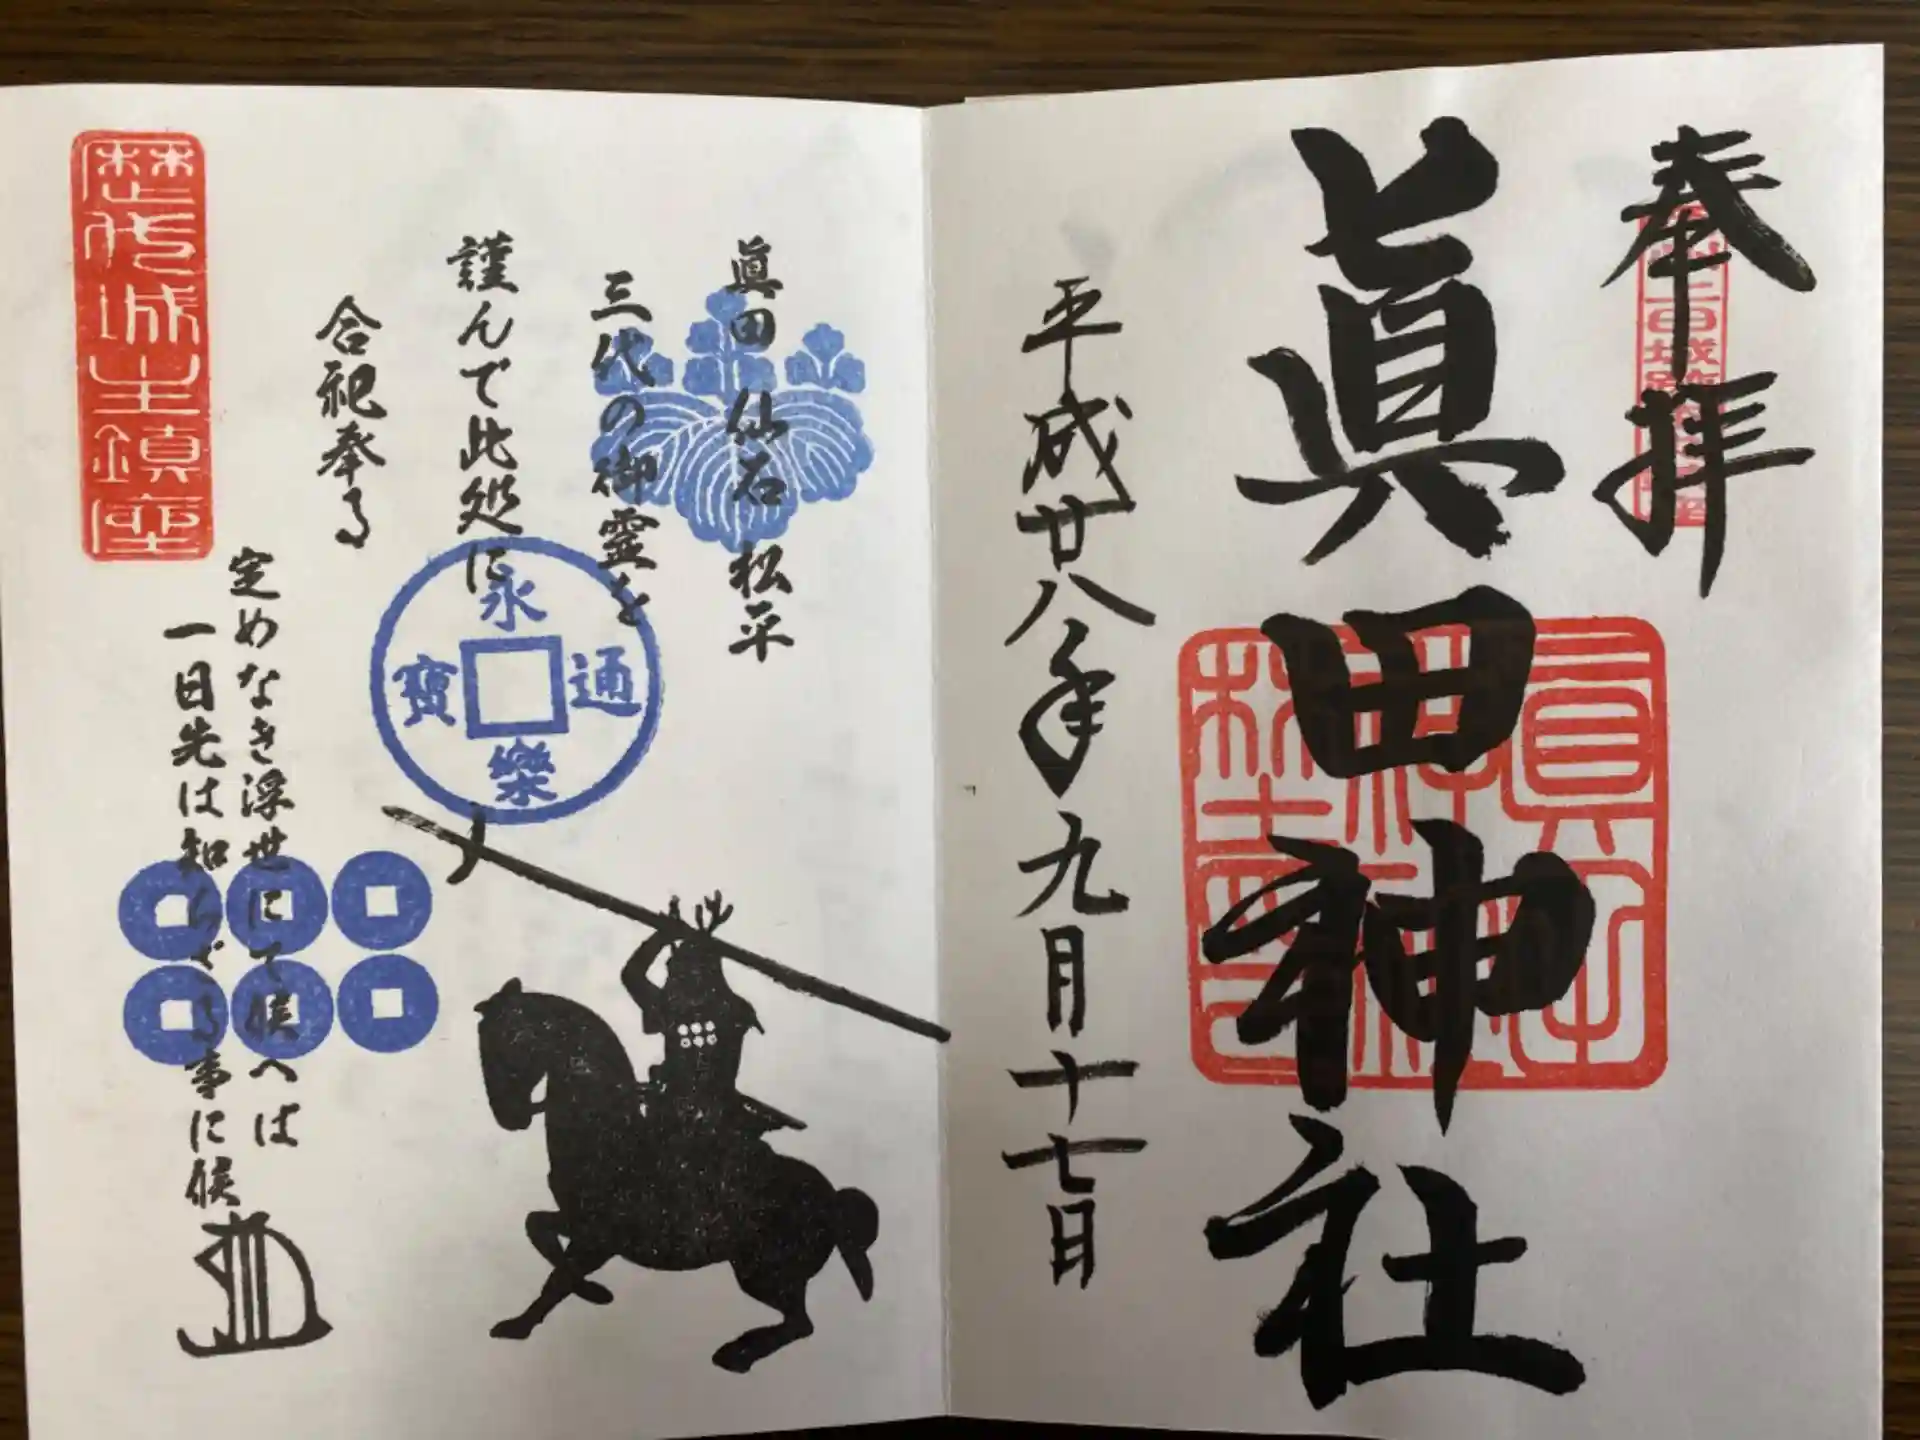 奉拝
眞田神社
平成廿八年九月十七日
眞田 仙石 松平
三代の御霊を
謹んで此処に
合祀奉る
永樂通寳
定めなき浮世にて候へは
一日先は知らざる事に候
歴代城主鎮座